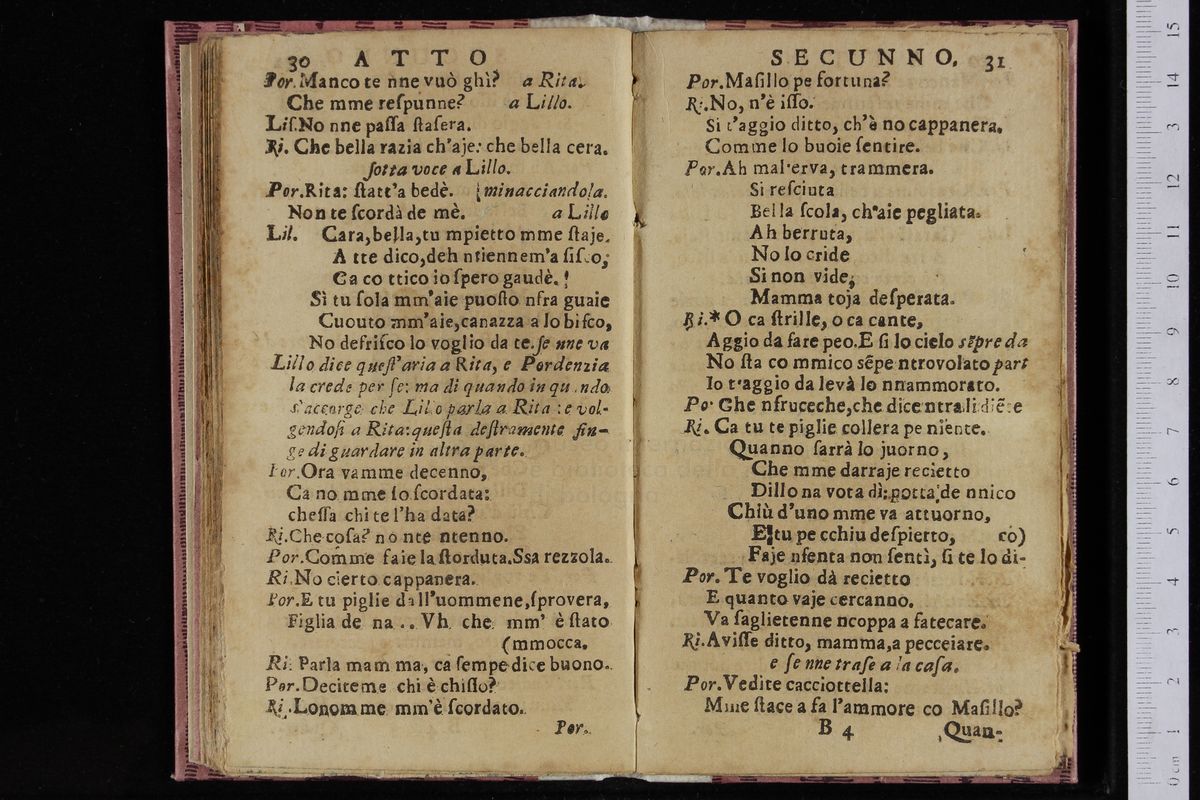 30 ATTO
Por. Manco te nne vuò ghì? a Rita.
Che mme reſpunne? a Lillo.
Liſ. No nne paſſa ſtaſera.
Ri. Che bella razia ch'aje: che bella cera.
ſotta voce a Lillo.
Por. Rita: ſtatt'a bedè. [minacciandola.
Non te ſcordà de mè. a Lillo
Lil. Cara, bella, tu mpietto mme ſtaje.
A tte dico, deh ntiennem'a
Ca co ttico io ſpero gaudè. !
Sì tu ſola mm'aie puoſto nfra guaie
Cuouto mm'aie, canazza a lo biſco,
No defriſco lo voglio da te. ſe nne va
Lillo dice queſt'aria a Rita, e Pordenzia
la crede per ſe: ma di quando in qu ndo
s'accorge che Lillo parla a Rita : e vol-
gendoſi a Rita: queſta deſtramente fin-
ge di guardare in altra parte.
Por. Ora vamme decenno,
Ca no mme ſo ſcordata:
cheſſa chi te l'ha data?
Ri. Che coſa? no nte ntenno.
Por. Comme faie la ſtorduta. Ssa rezzola.
Ri. No cierto cappanera.
Por. E tu piglie dall'uommene, ſprovera,
Figlia de na .. Vh che mm' è ſtato
(mmocca.
Ri. Parla mamma, ca ſempe dice buono.
Por. Deciteme chi è chiſſo?
Ri. Lonomme mm'è ſcordato.
Por.
SECUNNO. 31
Por. Maſillo pe fortuna?
Ri. No, n'è iſſo.
Si t'aggio ditto, ch'è no cappanera.
Comme lo buoie ſentire.
Por. Ah mal'erva, trammera.
Si reſciuta
Bella ſcola, ch'aie pegliata.
Ah berruta,
No lo cride
Si non vide;
Mamma toja deſperata.
Ri.* O ca ſtrille, o ca cante,
Aggio da fare peo. E ſi lo cielo sẽpre da
No ſta co mmico sẽpe ntrovolato part
Io t'aggio da levà lo nnammorato.
Po. Che nfruceche, che dice ntra li diẽte
Ri. Ca tu te piglie collera pe niente.
Quanno ſarrà lo juorno,
Che mme darraje recietto
Dillo na vota dì: potta de nnico
Chiù d'uno mme va attuorno,
E tu pe cchiu deſpierto, co)
Faje nfenta non ſentì, ſi te lo di-
Por. Te voglio dà recietto
E quanto vaje cercanno.
Va ſaglietenne ncoppa a fatecare.
Ri. Aviſſe ditto, mamma, a pecceiare.
e ſe nne traſe a la caſa.
Por. Vedite cacciottella:
Mme ſtace a fa l'ammore co Maſillo?
B 4 Quan-
0 cm 1 2 3 4 5 6 7 8 9 10 11 12 13 14 15